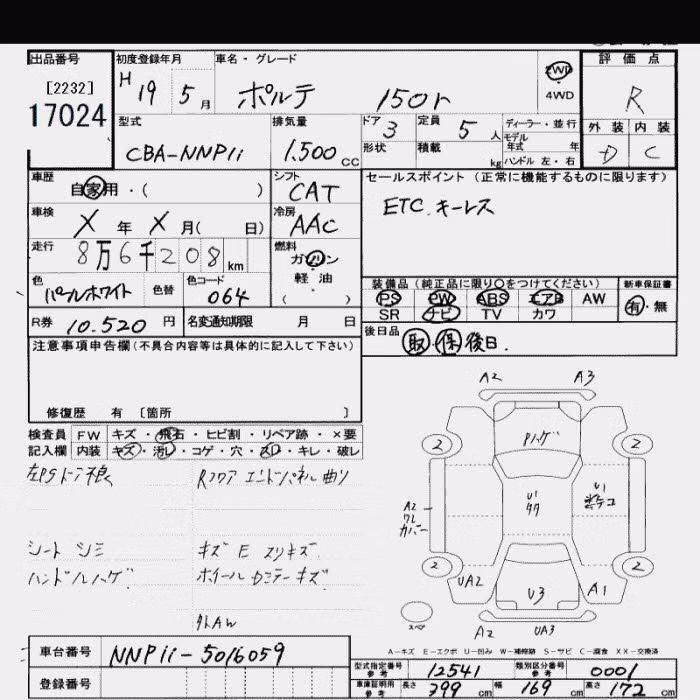 出品番号
[2232]
17024
初度登録年月
H 19 5月
車名・グレード
ポルテ 150r
2WD
4WD
評価点
R
外装 内装
D C
型式
CBA-NNP11
排気量
1.500 CC
ドア 3
形状
定員 5人
積載 kg
ディーラー・並行
モデル
年式 年
ハンドル 左・右
車歴
自家用・( )
シフト
CAT
セールスポイント(正常に機能するものに限ります)
ETC.キーレス
車検
X年 X月( 日)
冷房
AAC
走行
8万6千208km
燃料
ガソリン
軽油
( )
色
パールホワイト
色替
色コード
064
装備品(純正品に限り○をつけてください)
PS PW ABS エアB AW
SR ナビ TV カワ
新車保証書
有・無
R券 10.520 円
名変通知期限 月 日
後日品
取・保 後日.
注意事項申告欄(不具合内容等は具体的に記入して下さい)
修復歴 有 〔箇所 〕
検査員
記入欄
FW キズ・飛石・ヒビ割・リペア跡・×要
内装 キズ・汚レ・コゲ・穴・スレ・キレ・破レ
左PSドア不良
Rフロア エンドパネル曲り
シート シミ
ハンドルハゲ
キズ E スリキズ
ホイールセンターキズ
外AW
A2 A3
2 2
Pハゲ
A2
ワレ
カバー
U1
タタ
U1
2 2
UA2
U3
A1
スペア
A2 UA3
A-キズ E-エクボ U-凹み W-補修跡 S-サビ C-腐食 XX-交換済
車台番号
NNP11-5016059
登録番号
型式指定番号
参考
12541
類別区分番号
参考
0001
車庫証明用
参考
長さ 399 cm 幅 169 cm 高さ 172 cm